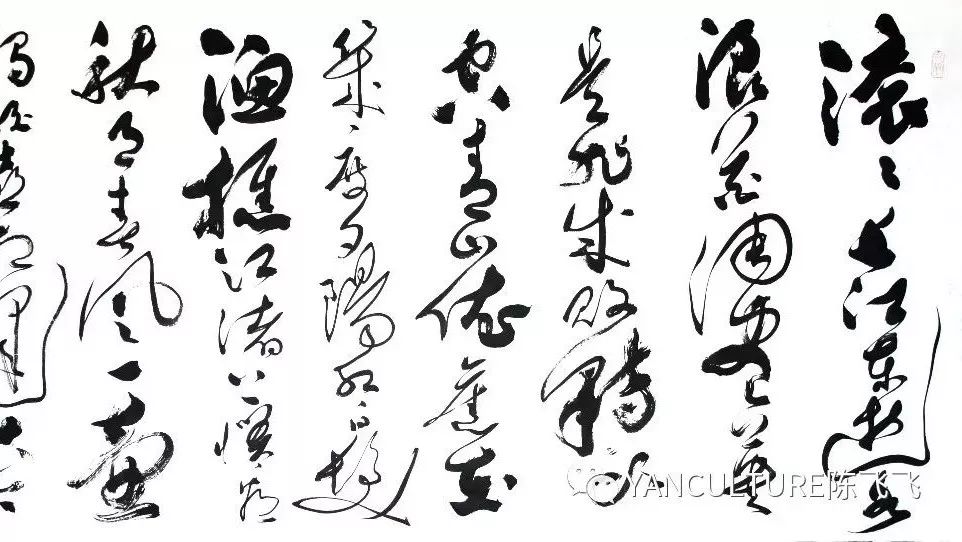 滚滚长江东逝水
浪花淘尽英雄
是非成败转头
空青山依旧在
几度夕阳红白发
渔樵江渚上惯看
秋月春风一壶
浊酒喜相逢古
YANCULTURE陈飞飞